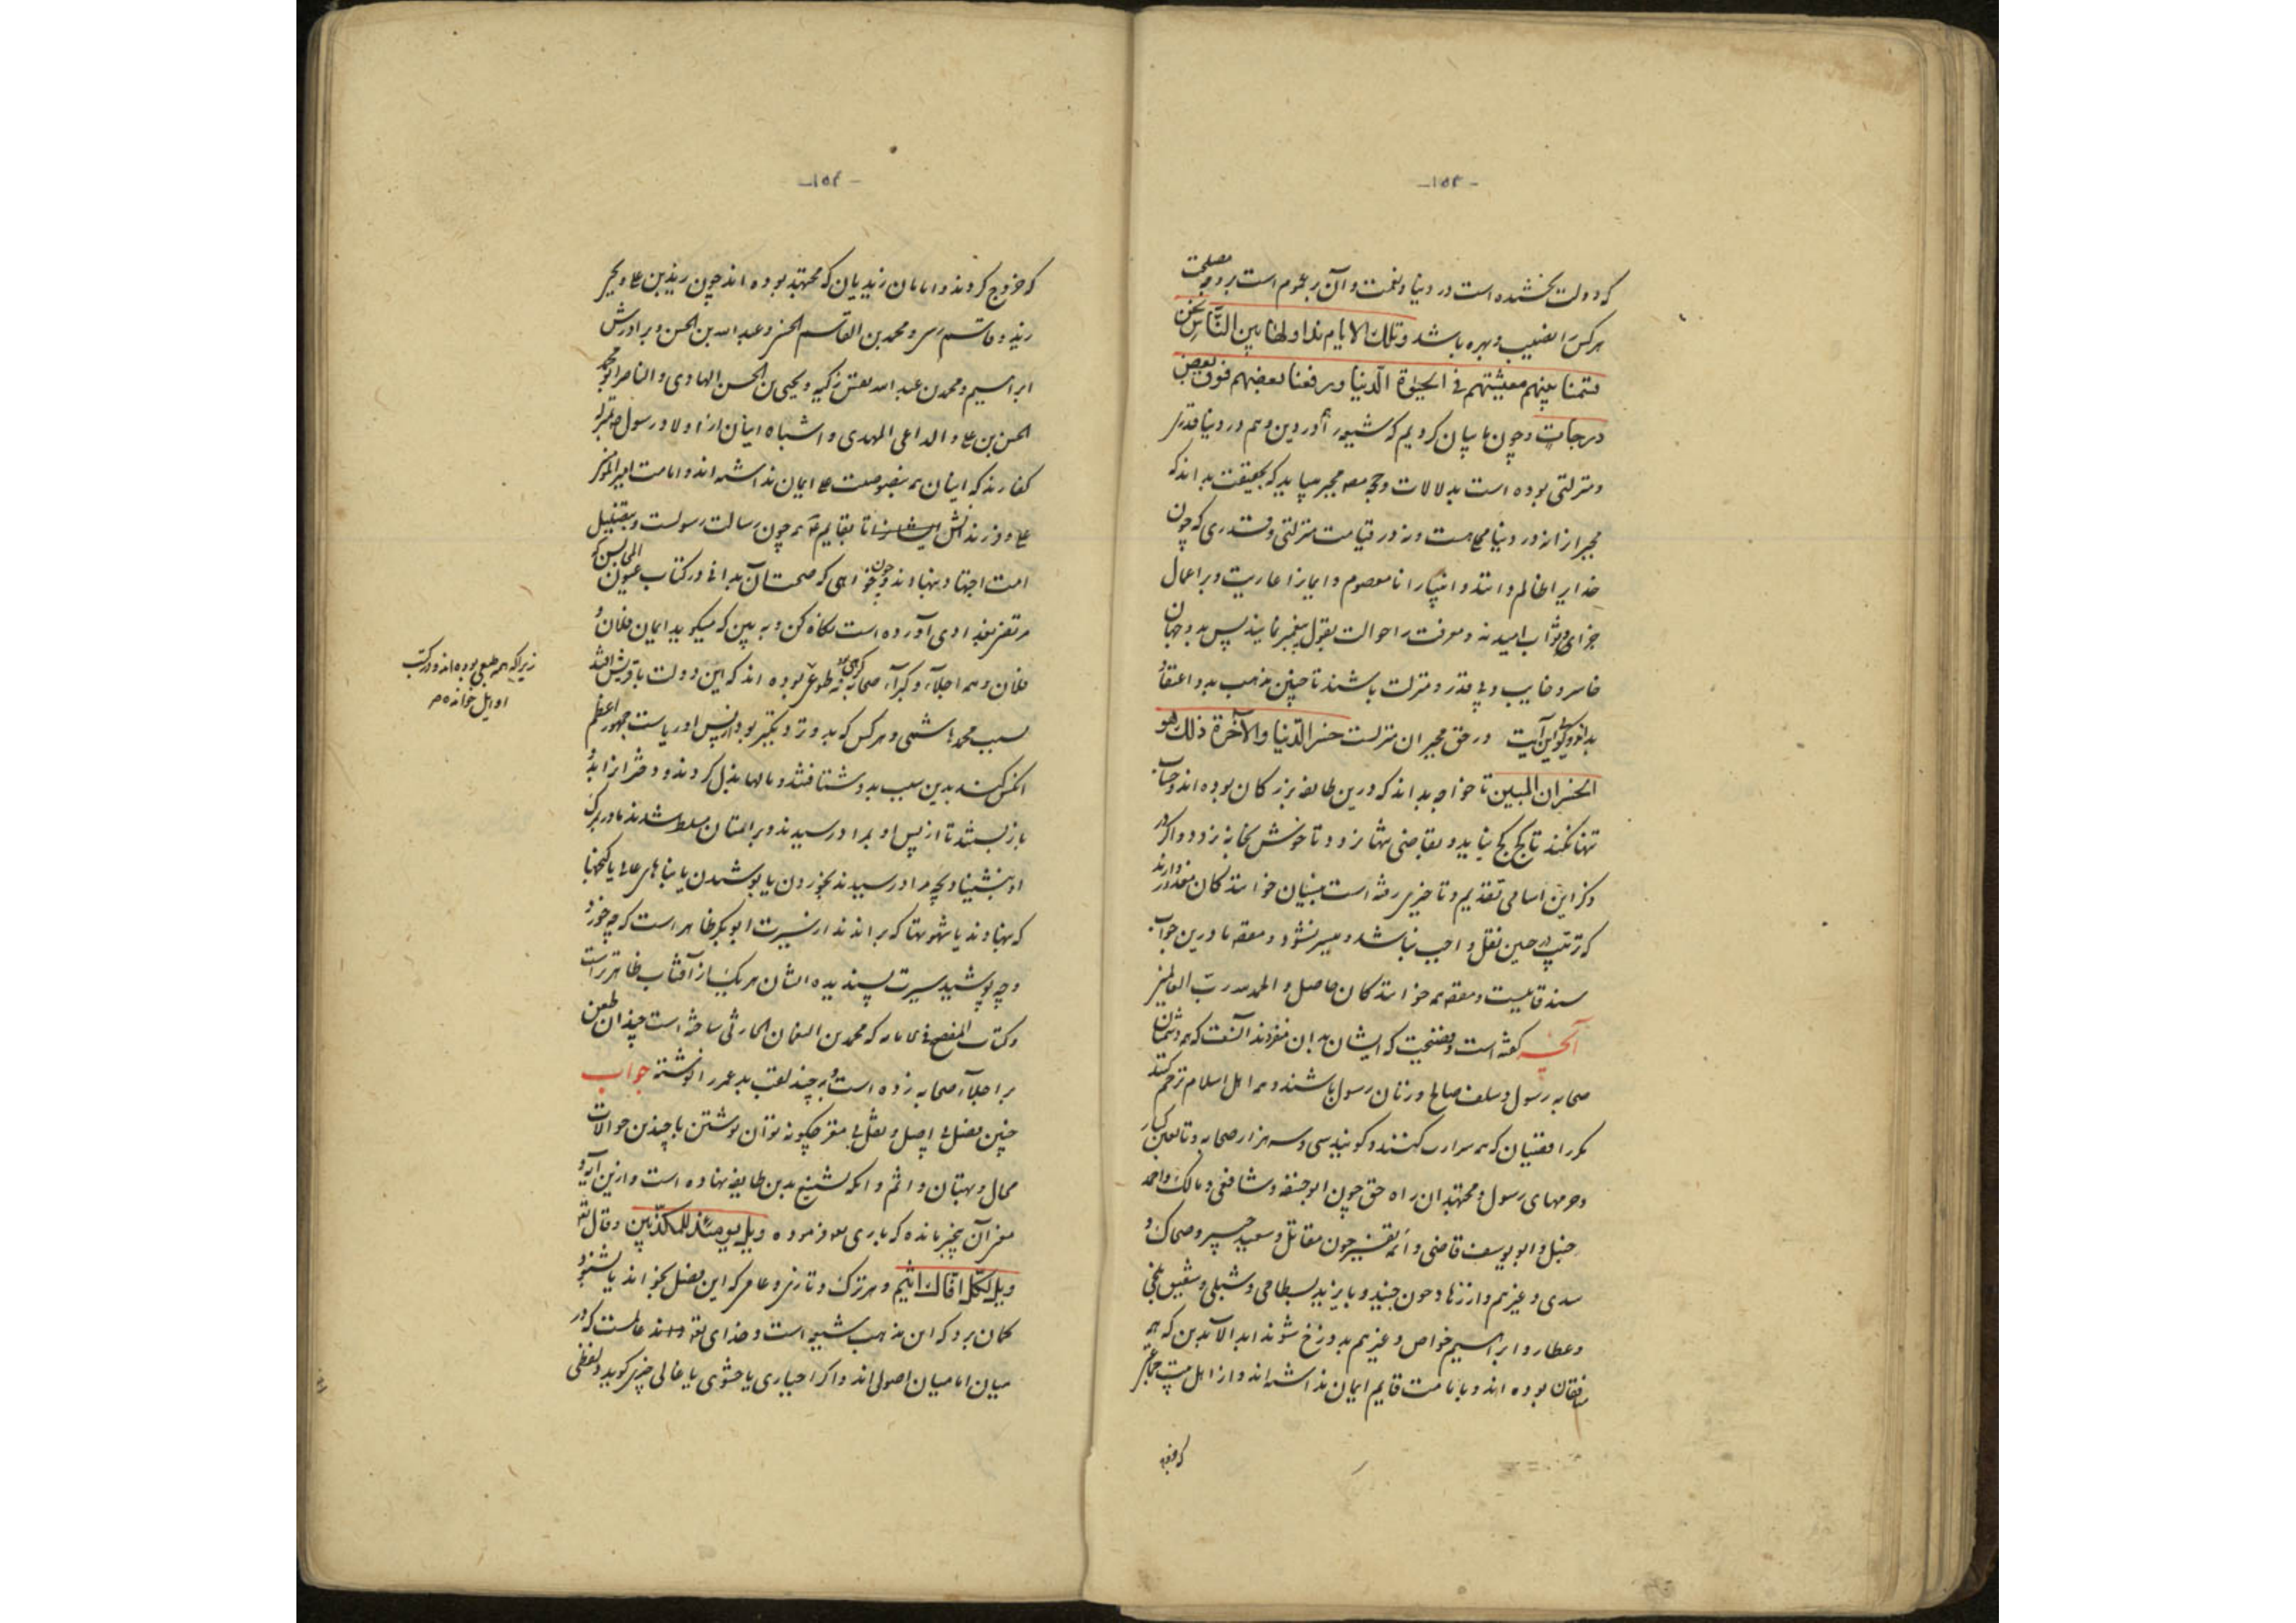 -۱۵۳-
که دولت بخشیده است در دنیا و نعمت و آن بر عموم است بر وجه مصلحت
هر کس را نصیب و بهره باشد وتلک الایام نداولها بین النّاس نحن
قسمنا بینهم معیشتهم فی الحیوٰة الدّنیا ورفعنا بعضهم فوق بعض
درجات و چون ما بیان کردیم که شیعه را در دین و هم در دنیا قدر
و منزلتی بوده است بدلالات و حجج مجبر میباید که بحقیقت بداند که
مجبر را نه در دنیا محلست و نه در قیامت منزلتی و قدری که چون
خدا را ظالم داند و انبیا را نامعصوم و ایمان را عاریت و بر اعمال
جزای و ثواب امید نه و معرفت را حوالت بقول پیغمبر نمایند پس بدو جهان
خاسر و خایب و بی قدر و منزلت باشند تا چنین مذهب بد و اعتقاد
این آیت در حق مجبران منزلست خسر الدّنیا والآخرة ذلک هو
الخسران المبین تا خواجه بداند که درین طایفه بزرگان بوده اند و حساب
تنها نکند تا کج کج نیاید و بقاضی تنها نرود تا خوش بخانه نرود و اگر در
ذکر این اسامی تقدیم و تاخیری رفته است بینان خوانندگان معذور دارند
که ترتیب در حین نقل واجب نباشد و میسر نشود و مقصد ما درین جواب
و مقصد همه خوانندگان حاصل والحمد لله ربّ العالمین
آنچه گفته است و فضیحت که ایشان بدان منفردند آنست که همه دشمنان
صحابه رسول و سلف صالح و زنان رسول باشند و همه اهل اسلام ترحم کنند
مگر رافضیان که گویند سی و سه هزار صحابه و تابعین کبار
و حرمهای رسول و مجتهدان راه حق چون ابوحنیفه و شافعی و مالک و احمد
حنبل و ابو یوسف قاضی و ائمه تفسیر چون مقاتل و سعید جبیر و ضحاک و
سدی و غیرهم و از زهاد چون جنید و بایزید بسطامی و شبلی و شقیق بلخی
و عطار و ابراهیم خواص و غیرهم بدوزخ شوند ابد الآبدین که همه
منافقان بوده اند و بامامت قایم ایمان نداشته اند و از اهل بیت جماعتی
-۱۵۴-
که خروج کردند و امامان زیدیان که مجتهد بوده اند چون زید بن علی و یحیی
زید و قاسم رسی و محمد بن القاسم الحسنی و عبد الله بن الحسن و برادرش
ابراهیم و محمد بن عبد الله نفس زکیه و یحیی بن الحسن الهادی و الناصر ابو محمد
الحسن بن علی و الداعی المهدی و اشباه ایشان از اولاد رسول بمنزله
کفارند که ایشان بمنصوصیت علی ایمان نداشته اند و امامت امیر المؤمنین
علی و فرزندانش تا بقایم همه چون رسالت رسولست و بتفضیل
امت اجتهاد نهاده اند و چون خواهی که صحت آن بدانی در کتاب عیون المجالس که
مرتضی بغدادی آورده است نگاه کن و ببین که میگوید ایمان فلان و
فلان و همه اجلاء و کبراء صحابه نه طوعی بوده اند که این دولت با قریش افتد
زیرا که همه طبعی بوده اند و در کتب
اوایل خوانده
بسبب محمد هاشمی و هر کس که بدو نزدیکتر بود از پس او ریاست جمهور اعظم
آنکس کند بدین سبب بدو شتافتند و مالها بذل کردند و دختران را بدو
باز بستند تا از پس او بمراد رسیدند و بر امتان مسلط شدند
او بنشیند و بچه مراد رسیدند بخوردن یا پوشیدن یا بناهای عالی یا گنجها
که نهادند یا شهوتها که براندند از سیرت ابوبکر ظاهر است که چه خورد
و چه پوشید سیرت پسندیده ایشان هر یک از آفتاب ظاهرتر است
و کتاب المفصح فی الامامه که محمد بن النعمان الحارثی ساخته است چندان طعن
بر اجلاء صحابه زده است و بر چند لقب بد عمر را نوشته جواب
چنین فصلی بی اصل و نقلی بی مغز چگونه توان نوشتن با چندین حوالات
محال و بهتان و اثم و آنکه تشنیع بدین طایفه نهاده است و ازین آیه و
معنی آن بیخبر مانده که باری تعالی فرموده ویل یومئذ للمکذّبین و قال تعالی
ویل لکلّ افّاک اثیم و هر ترک و تازی و عامی که این فصل بخواند یا بشنود
گمان برد که این مذهب شیعه است و خدای تعالی عالمست که در
میان امامیان اصولی اند و اگر اخباری یا حشوی یا غالی چیزی گوید و لفظی